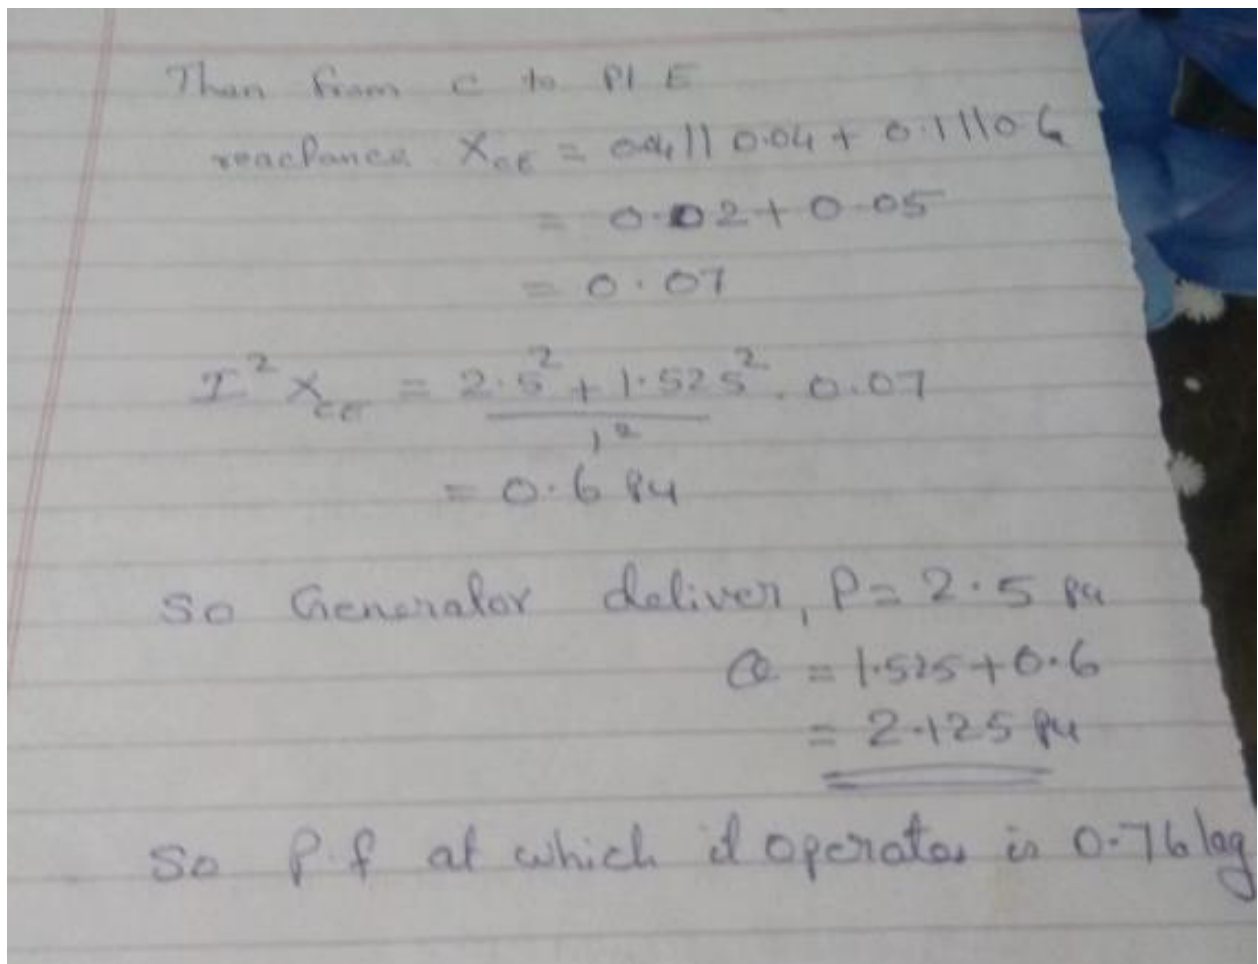 Then from C to Pt E
reactance X_CE = 0.04 || 0.04 + 0.1 || 0.1
= 0.02 + 0.05
= 0.07
I² X_CE = (2.5² + 1.525²) / 1² . 0.07
= 0.6 pu
So Generator deliver, P = 2.5 pu
Q = 1.525 + 0.6
= 2.125 pu
So P.f at which it operates is 0.76 lag